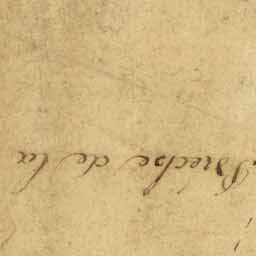 Breche de la